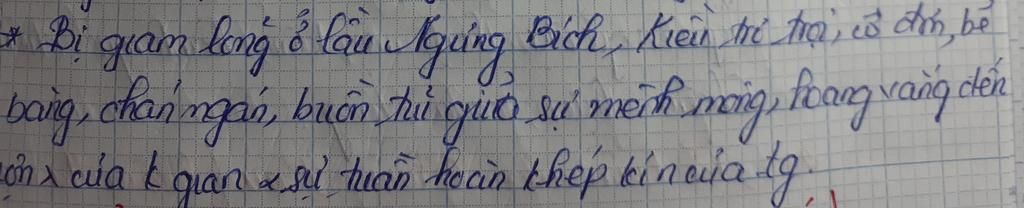 * Bị giam lỏng ở lầu Ngưng Bích, Kiều trơ trọi, cô đơn, bẽ
bàng, chán ngán, buồn tủi giữa sự mênh mông, hoang vắng đến
của k gian & sự tuần hoàn khép kín của tg.